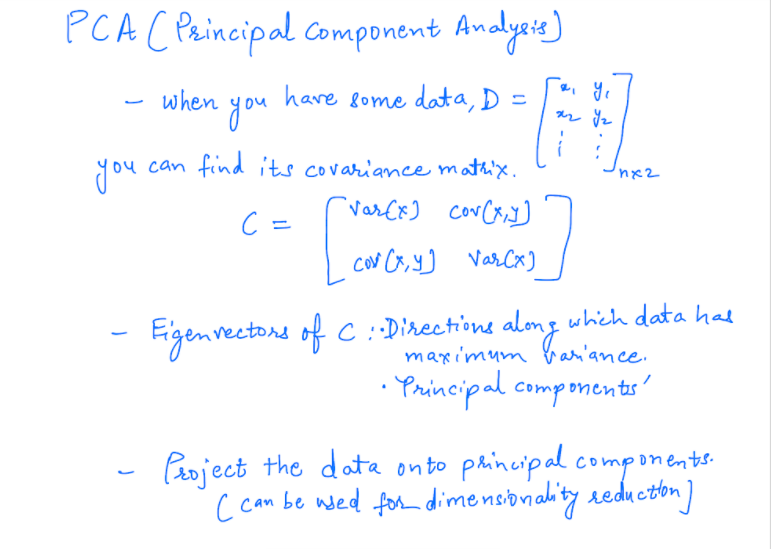 PCA (Principal Component Analysis)
- when you have some data, D = [x₁ y₁
x₂ y₂
⋮ ⋮]n×2
you can find its covariance matrix.
C = [Var(x) cov(x,y)
cov(x,y) Var(x)]
- Eigenvectors of C : · Directions along which data has
maximum variance.
· 'Principal components'
- Project the data onto principal components.
(can be used for dimensionality reduction)